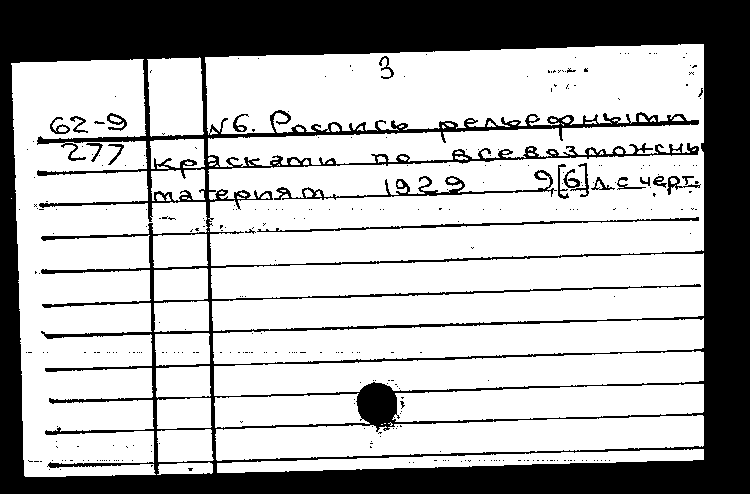 3
62-9 №6. Роспись рельефными
277 красками по всевозможны
материям. 1929 9[6]л. с черт.